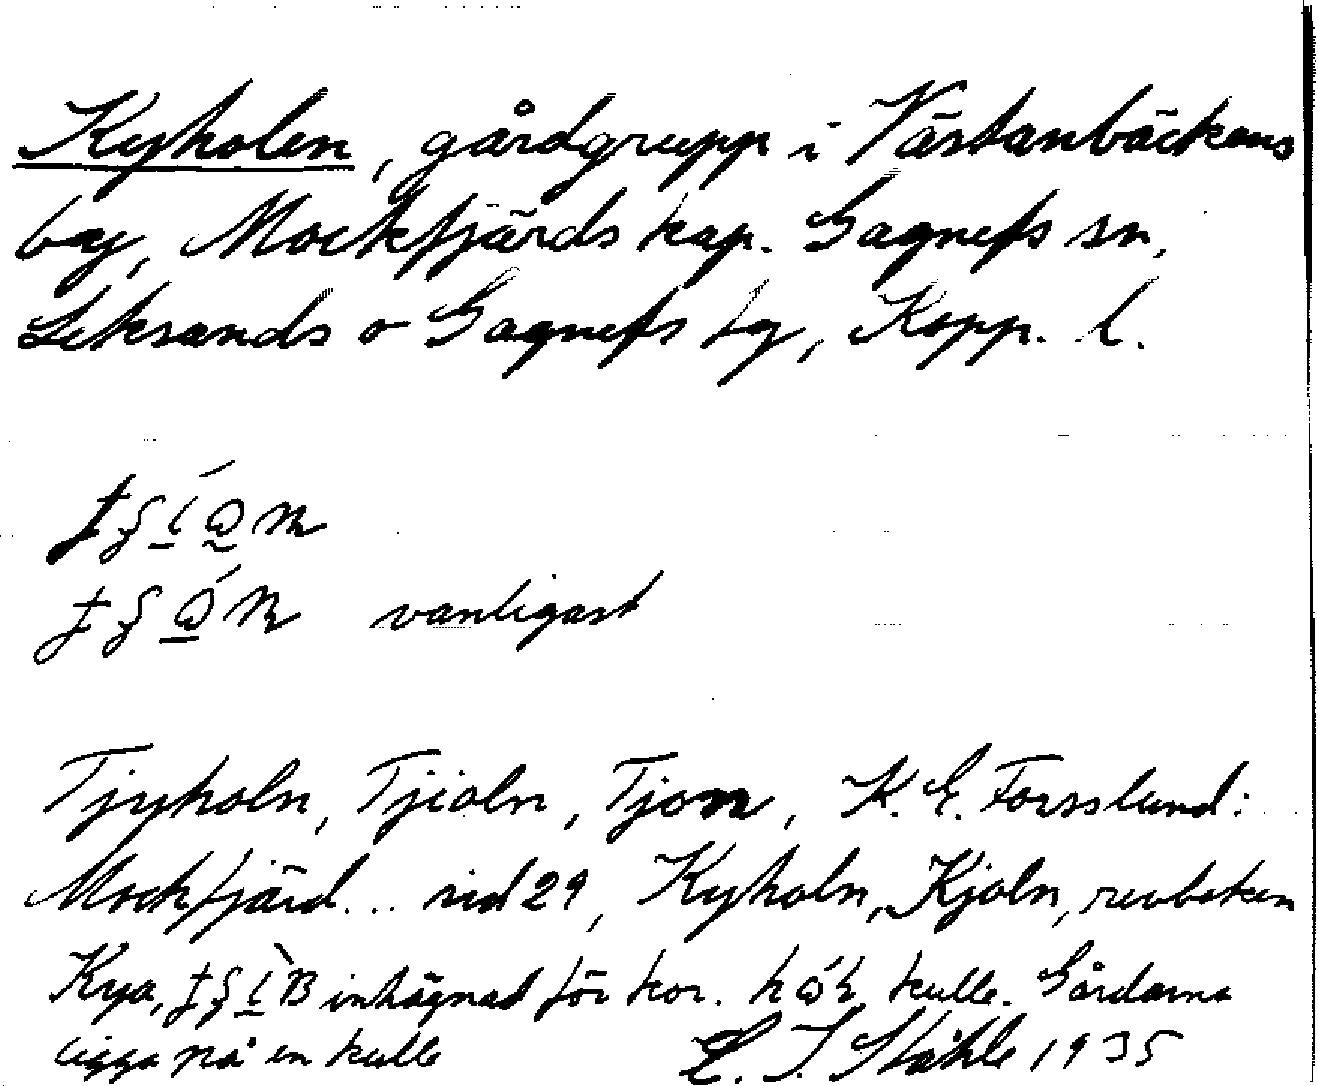 Kyholen, gårdgrupp i Västanbäckens
by, Mockfjärds kap. Gagnefs sn,
Leksands o Gagnefs tg, Kopp. l.
vanligast
Tjyholn, Tjioln, Tjon, K. E. Forsslund:
Mockfjärd... sid 29, Kyholn, Kjoln, revboken
Kya, inhägnad för kor. kulle. Gårdarna
ligga på en kulle E. I. Ståhle 1935